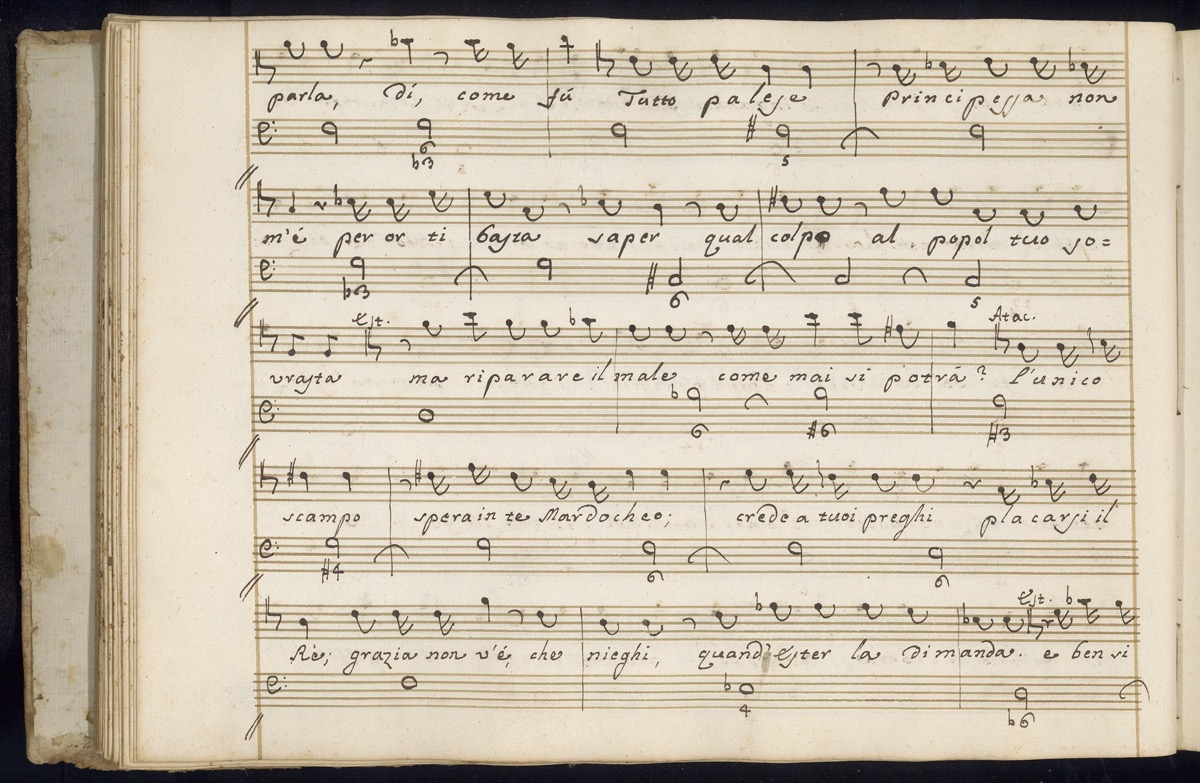 parla, di, come fú Tutto palese Principessa non
6
♭3 5
m'é per or ti basta saper qual colpo al popol tuo so=
♭3 6 5
Est. Atac.
vrasta ma riparare il male come mai si potrá? l'unico
6 #6 #3
scampo spera in te Mardocheo; crede a tuoi preghi placarsi il
#4 6 6
Est.
Rè; grazia non v'é, che nieghi, quand' Ester la dimanda. e ben si
4 ♭6